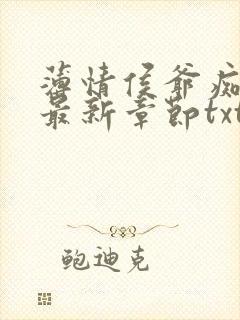 薄情侯爷痴
最新章节txt
鲍迪克